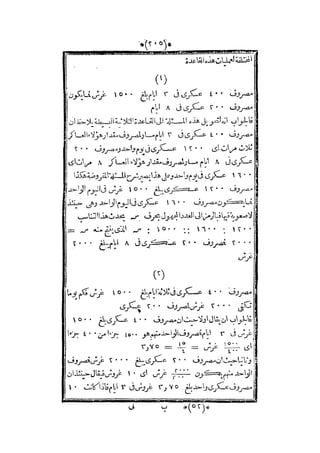 *(٢٠٥)*
المختلفة لعمليات هذه القاعدة
(١)
مصروف ٤٠٠ عسكرى فى ٣ ايام بلغ ١٥٠٠ غرش فمايكون
مصروف ٢٠٠ عسكرى فى ٨ ايام
فالجواب انه لتحويل هذه المسئلة الى القاعدة الثلاثية البسيطة يلاحظ ان
مصروف ٤٠٠ عسكرى فى ٣ ايام مساو لمصروف مقدار هؤلاء العساكر
ثلاث مرات اى ١٢٠٠ عسكرى فى يوم واحد ومصروف ٢٠٠
عسكرى فى ٨ ايام مساو لمصروف مقدار هؤلاء العساكر ٨ مرات اى
١٦٠٠ عسكرى فى يوم واحد وعلى هذا يصير شرح المسئلة المفروضة هكذا
مصروف ١٢٠٠ عسكرى بلغ ١٥٠٠ غرش فى اليوم الواحد
فما يكون مصروف ١٦٠٠ عسكرى فى اليوم الواحد وهى حينئذ
لاصعوبة فيها فبالرمز الى العدد المجهول بحرف سه يحدث هذا التناسب
١٢٠٠ : ١٦٠٠ :: ١٥٠٠ : سه الذى ينتج منه سه =
٢٠٠٠ فمصروف ٢٠٠ عسكرى فى ٨ ايام بلغ ٢٠٠٠
غرش
(٢)
مصروف ٤٠٠ عسكرى فى ثلاثة ايام بلغ ١٥٠٠ غرش فكم يوما
تكفى ٢٠٠٠ غرش لمصروف ٢٠٠ عسكرى
فالجواب ان يقال اولا حيث ان مصروف ٤٠٠ عسكرى بلغ ١٥٠٠
غرش فى ٣ ايام فمصروف الواحد منهم هو ١٥٠٠ جزأ من ٤٠٠ جزأ
اى ١٥٠٠/٤٠٠ غرش = ١٥/٤ = ٣٫٧٥
وثانيا حيث ان مصروف ٢٠٠ عسكرى بلغ ٢٠٠٠ غرش فمصروف
الواحد منهم يكون ٢٠٠٠/٢٠٠ غرش اى ١٠ غروش فيقال حينئذ ان
مصروف عسكرى واحد بلغ ٣٫٧٥ غروش فى ٣ ايام فاذا كانت ١٠
*(٥٢)* ب لى